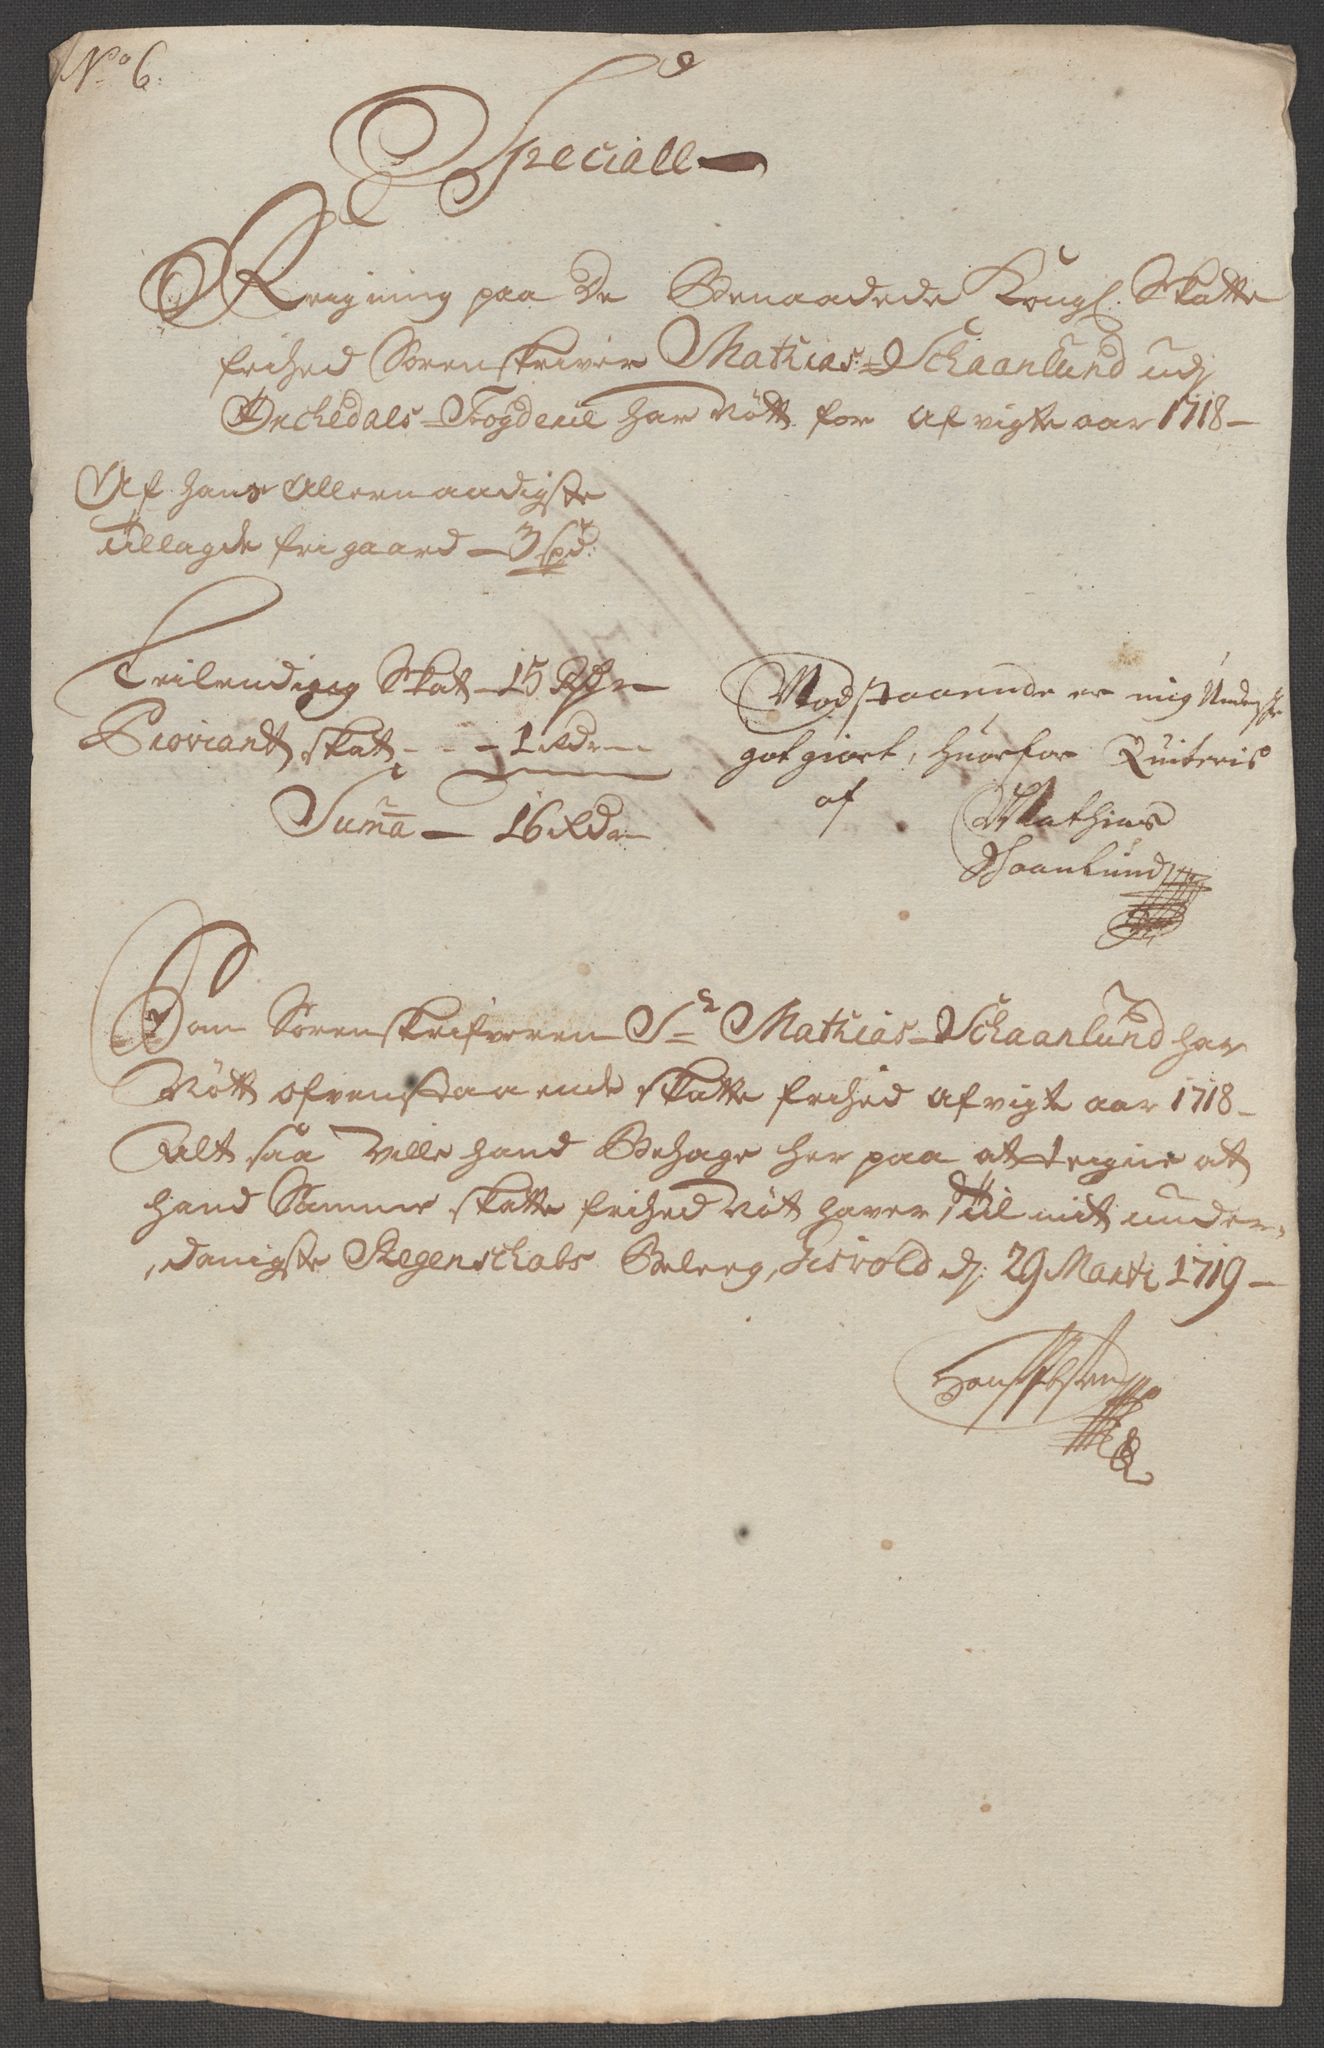 No 6.
Speciall
Reigning paa De Benaadede Kongl. Skatte
frihed Sorenskriver Mathias Schaanlund udj
Orchedals Fogderie har Nött for afvigte aar 1718
Af hans Allernaadigste
tillagde frigaard 3 spd:
Leilendings Skat 15 Rdr
Proviant skat 1 Rdr
Suma 16 Rdr
Modstaaende er mig
godgiort, huorfor Quiteris
af Mathias
Schaanlund
Som Sorenskrifveren Sr Mathias Schaanlund har
Nött ofvenstaaende skatte frihed afvigte aar 1718
Alt saa ville hand Behage her paa at teigne at
hand Samme skatte frihed Nöt haver til mit under
danigste Regenschabs Beleeg, d: 29 Marti 1719